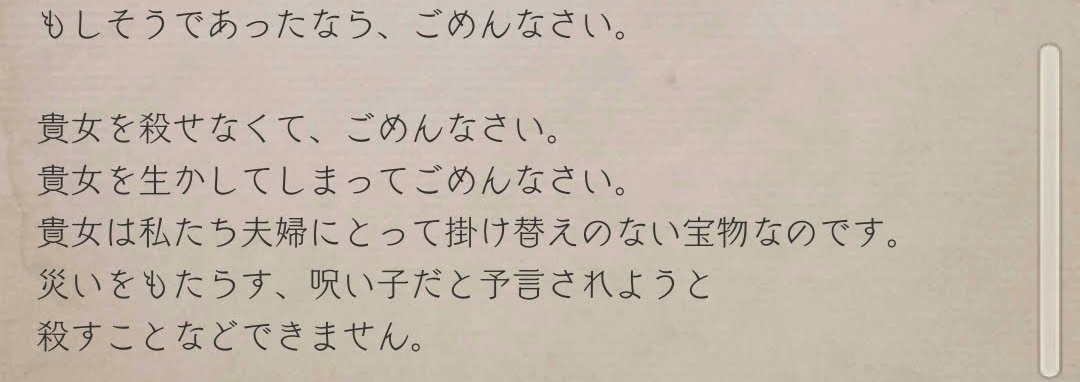 もしそうであったなら、ごめんなさい。
貴女を殺せなくて、ごめんなさい。
貴女を生かしてしまってごめんなさい。
貴女は私たち夫婦にとって掛け替えのない宝物なのです。
災いをもたらす、呪い子だと予言されようと
殺すことなどできません。